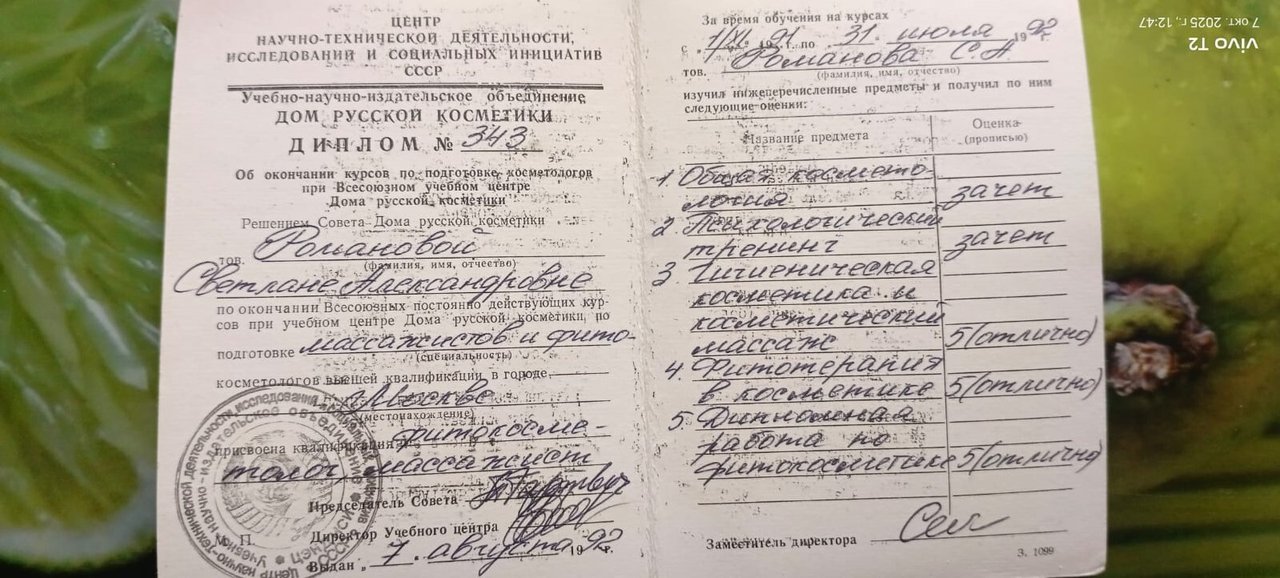 ЦЕНТР
НАУЧНО-ТЕХНИЧЕСКОЙ ДЕЯТЕЛЬНОСТИ,
ИССЛЕДОВАНИЙ И СОЦИАЛЬНЫХ ИНИЦИАТИВ
СССР
Учебно-научно-издательское объединение
ДОМ РУССКОЙ КОСМЕТИКИ
ДИПЛОМ № 343
Об окончании курсов по подготовке косметологов
при Всесоюзном учебном центре
Дома русской косметики
Решением Совета Дома русской косметики
тов. Романовой
(фамилия, имя, отчество)
Светлане Александровне
по окончании Всесоюзных постоянно действующих кур-
сов при учебном центре Дома русской косметики, по
подготовке массажистов и фито-
(специальность)
косметологов высшей квалификации, в городе
г. Москве
(местонахождение)
присвоена квалификация фитокосме-
толог, массажист
Председатель Совета
Директор Учебного центра
М. П.
Выдан „ 7. августа 1992 г.
За время обучения на курсах
с „1/XI. 1991 г. по 31. июля 1992 г.
тов. Романова С. А.
(фамилия, имя, отчество)
изучил нижеперечисленные предметы и получил по ним
следующие оценки:
Название предмета
Оценка
(прописью)
1. Общая космето-
логия зачет
2. Психологический
тренинг зачет
3. Гигиеническая
косметика и
косметический
массаж 5(отлично)
4. Фитотерапия
в косметике 5(отлично)
5. Дипломная
работа по
фитокосметике 5(отлично)
Заместитель директора
З. 1099
vivo T2
7 окт. 2025 г., 12:47